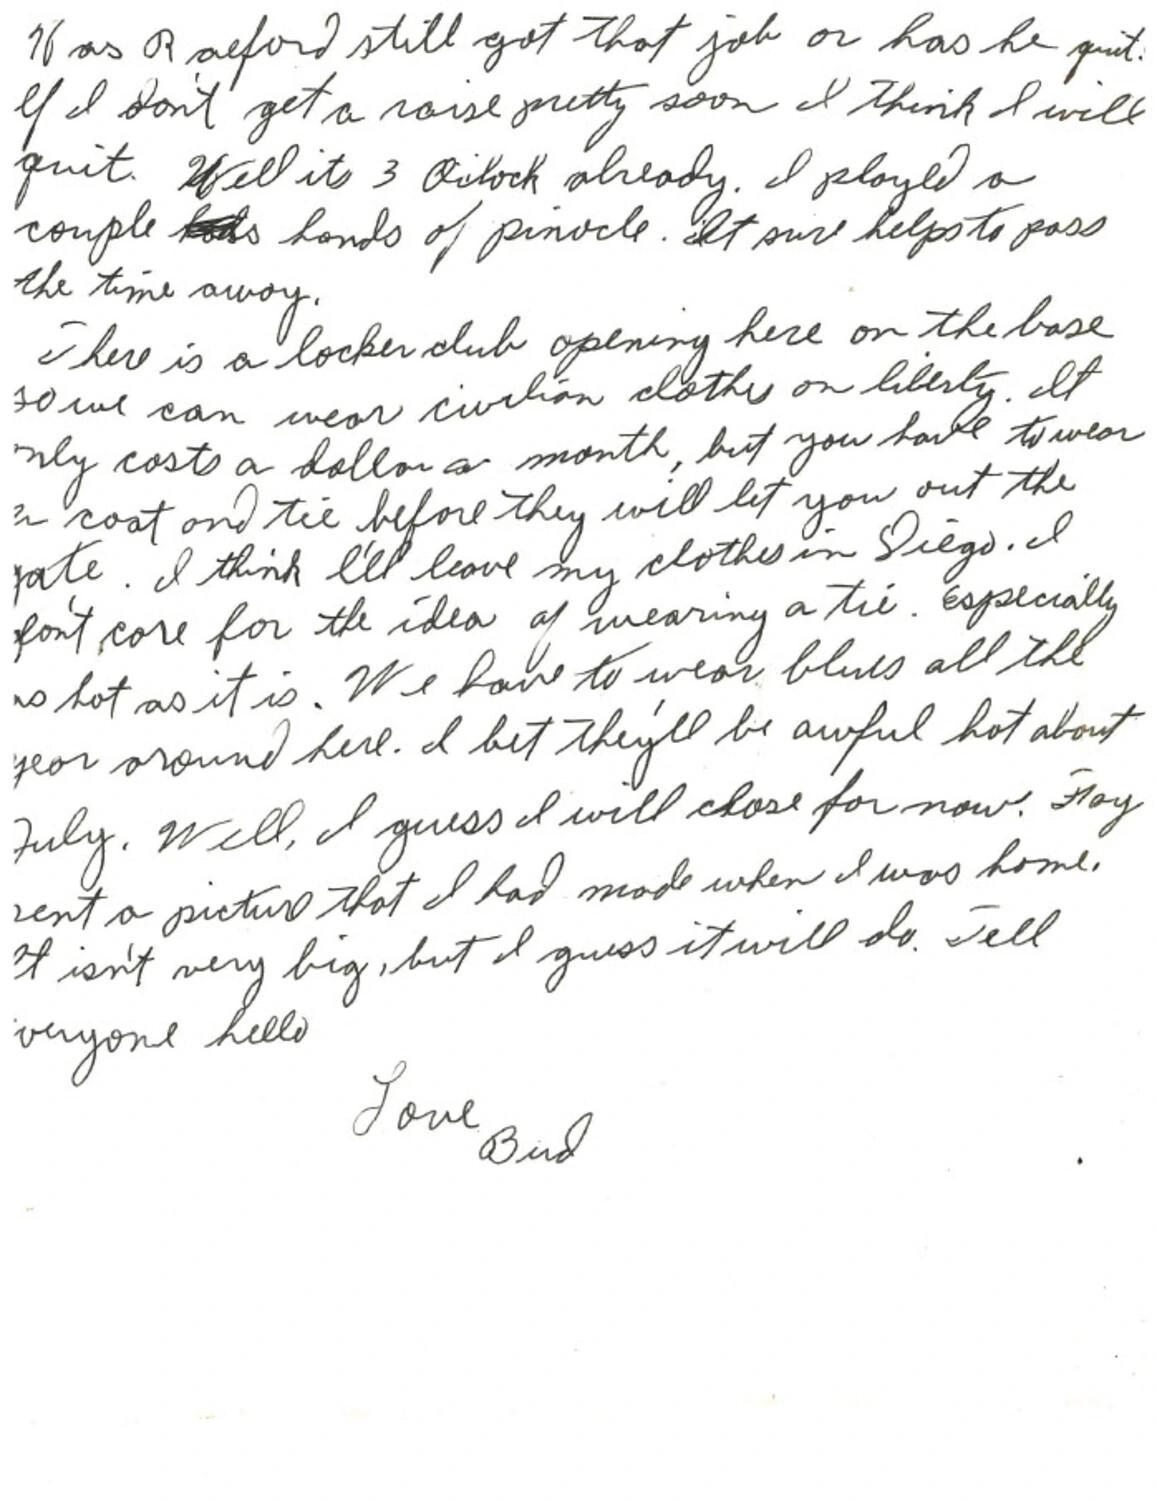 Has Raeford still got that job or has he quit.
If I don't get a raise pretty soon I think I will
quit. Well its 3 O'clock already. I played a
couple hands of pinocle. It sure helps to pass
the time away.
There is a locker club opening here on the base
so we can wear civilian clothes on liberty. It
nly costs a dollar a month, but you have to wear
a coat and tie before they will let you out the
gate. I think I'll leave my clothes in Diego. I
don't care for the idea of wearing a tie. Especially
as hot as it is. We have to wear blues all the
year around here. I bet they'll be awful hot about
July. Well, I guess I will close for now. Flay
sent a picture that I had made when I was home.
It isn't very big, but I guess it will do. Tell
veryone hello
Love
Bud